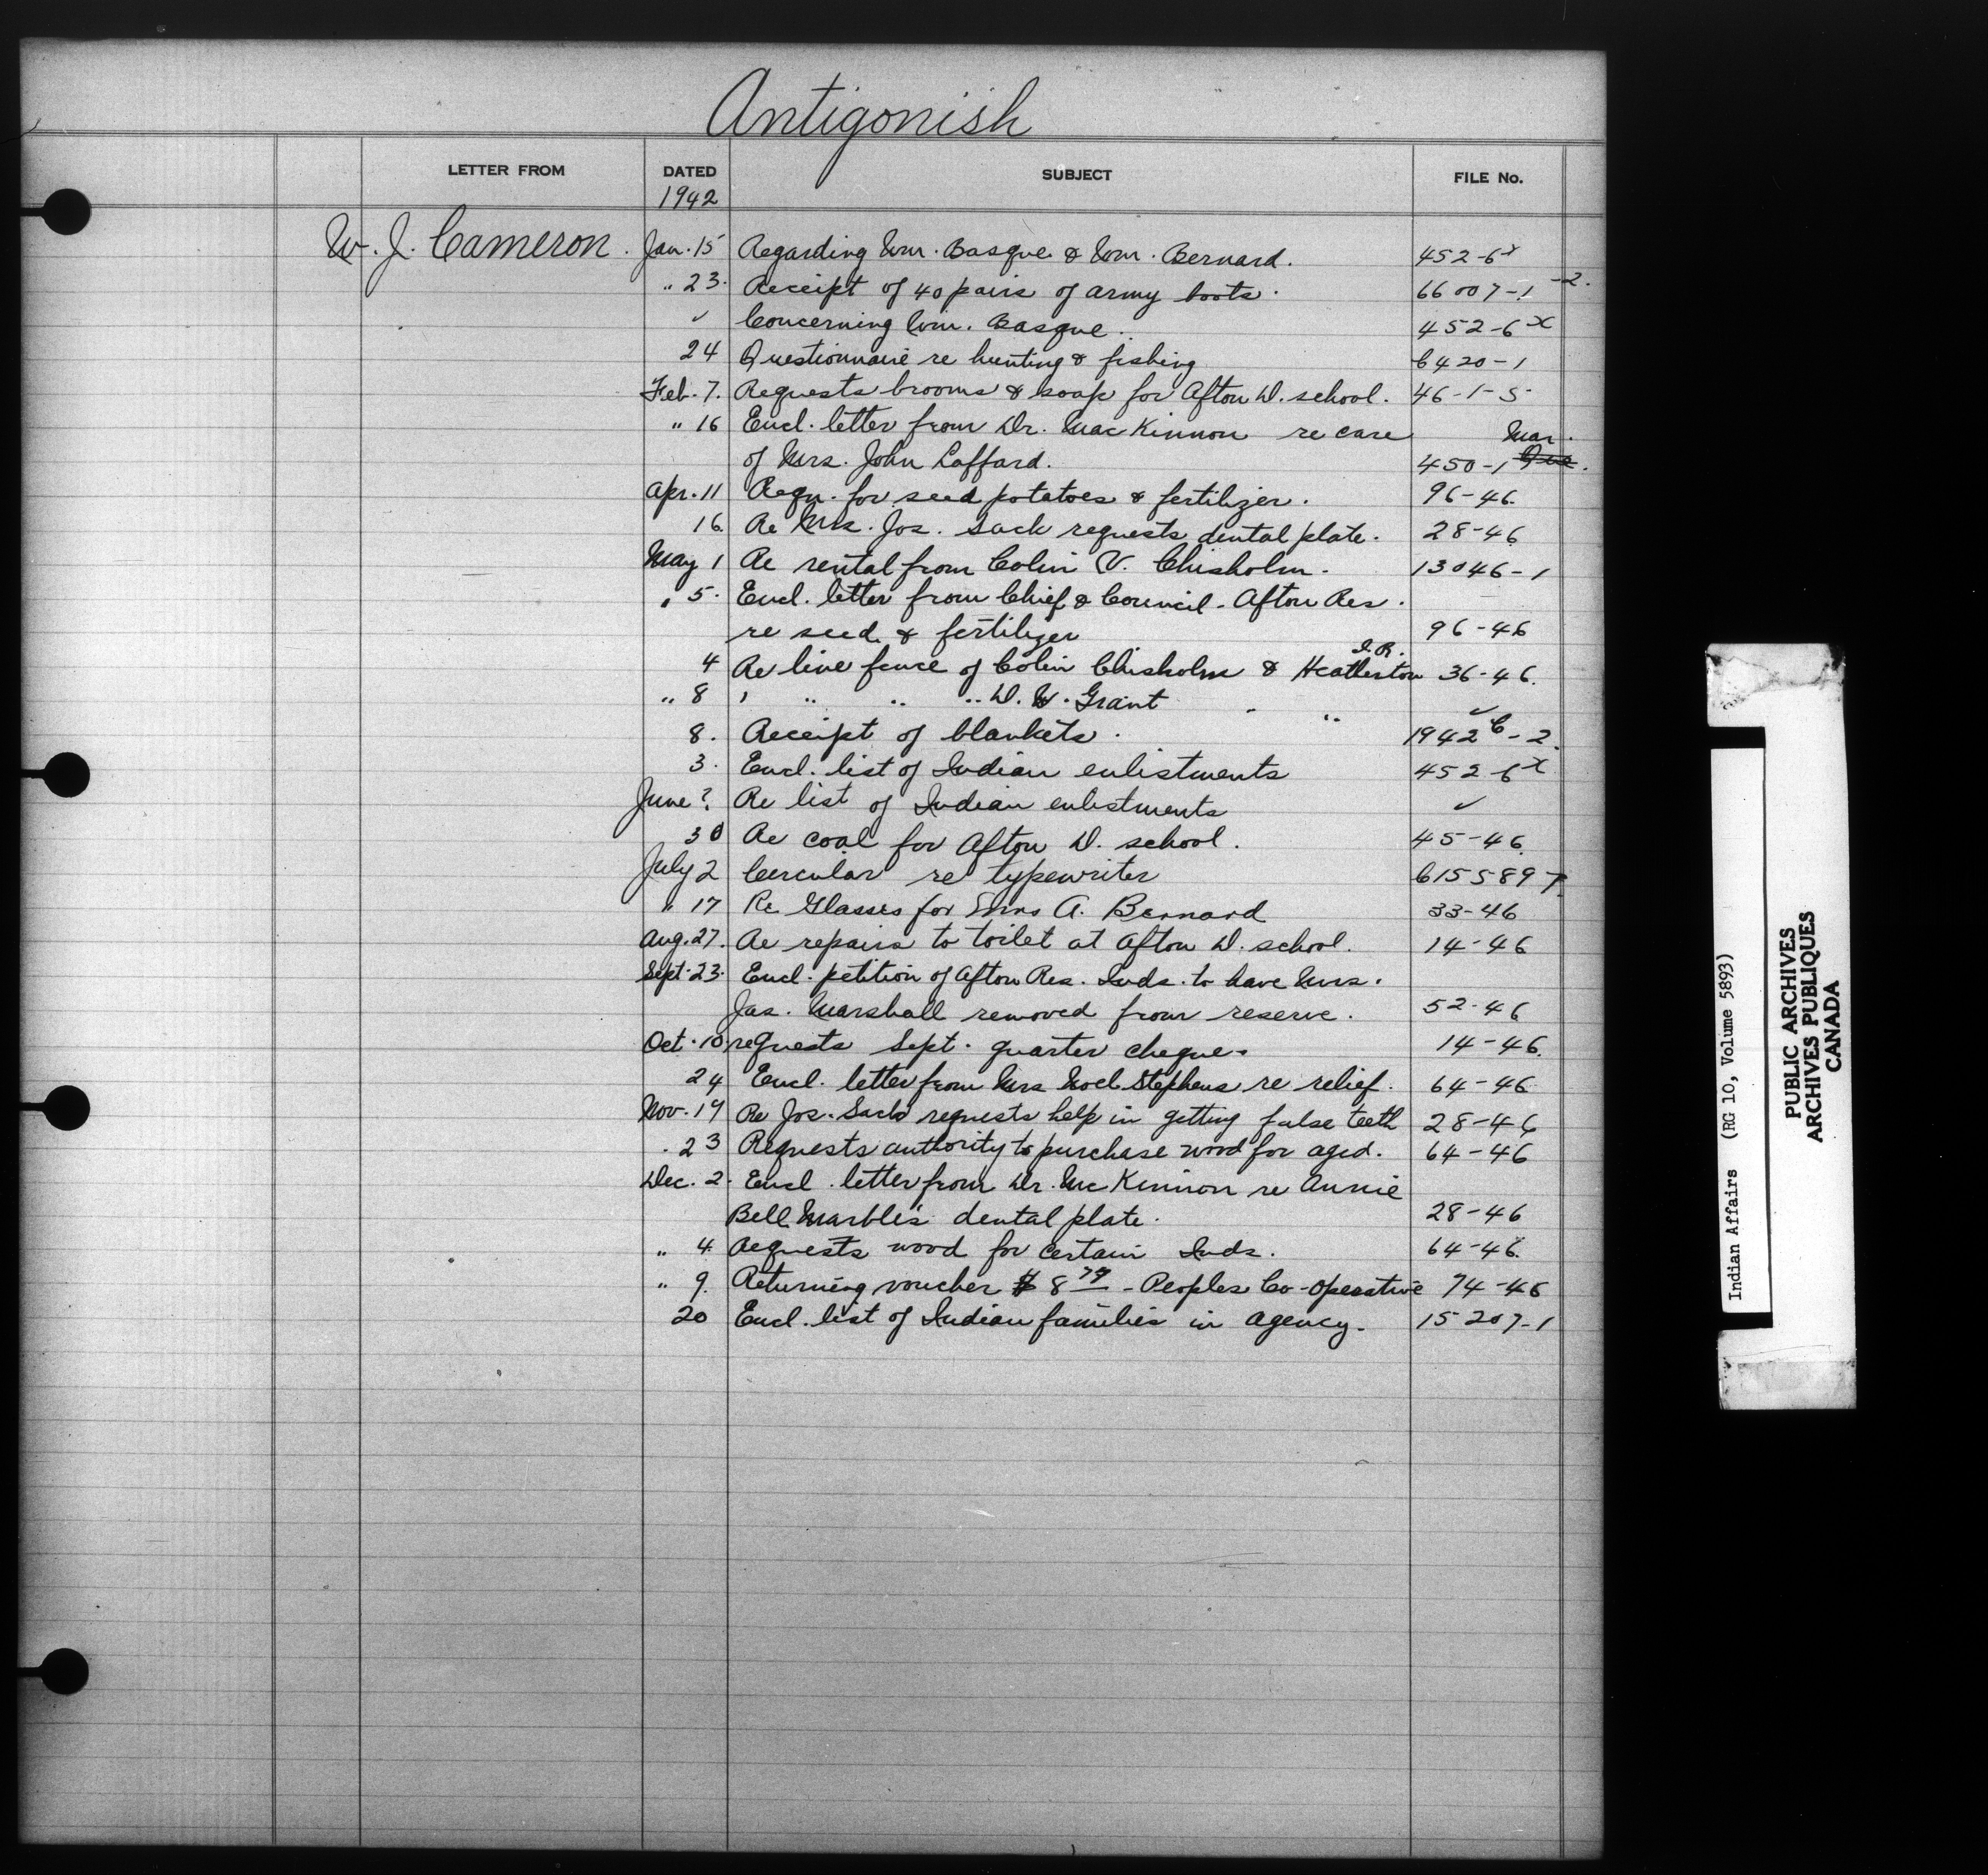 Antigonish
LETTER FROM DATED SUBJECT FILE No.
1942
W. J. Cameron. Jan. 15 Regarding Wm. Basque & Wm. Bernard. 452-6x
" 23. Receipt of 40 pairs of army boots. 66007-1-2.
✓ Concerning Wm. Basque. 452-6x
24 Questionnaire re hunting & fishing 6420-1
Feb. 7. Requests brooms & soap for Afton D. school. 46-1-5
" 16 Encl. letter from Dr. MacKinnon re care Mar.
of Mrs. John Laffard. 450-1
Apr. 11 Requ. for seed potatoes & fertilizer. 96-46
16. Re Mrs. Jos. Sack requests dental plate. 28-46
May 1 Re rental from Colin V. Chisholm. 13046-1
" 5. Encl. letter from Chief & Council - Afton Res.
re seed & fertilizer 96-46
4 Re line fence of Colin Chisholm & Heatherton I.R. 36-46.
" 8 " " " " D. W. Grant " " ✓
8. Receipt of blankets. 1942C-2.
3. Encl. list of Indian enlistments 452-6x
June ? Re list of Indian enlistments ✓
30 Re coal for Afton D. school. 45-46
July 2 Circular re typewriter 615589-7
" 17 Re Glasses for Mrs A. Bernard 33-46
Aug. 27. Re repairs to toilet at Afton D. school. 14-46
Sept. 23. Encl. petition of Afton Res. Inds. to have Mrs.
Jas. Marshall removed from reserve. 52-46
Oct. 10. requests Sept. quarter cheque. 14-46.
24 Encl. letter from Mrs Noel Stephens re relief. 64-46
Nov. 19 Re Jos. Sack requests help in getting false teeth 28-46
. 23 Requests authority to purchase wood for aged. 64-46
Dec. 2. Encl. letter from Dr. McKinnon re Annie
Bell Marble's dental plate. 28-46
" 4. Requests wood for certain Inds. 64-46.
" 9. Returning voucher $8 - Peoples Co-operative 74-46
20 Encl. list of Indian families in agency. 15207-1
Indian Affairs (RG 10, Volume 5893)
PUBLIC ARCHIVES
ARCHIVES PUBLIQUES
CANADA